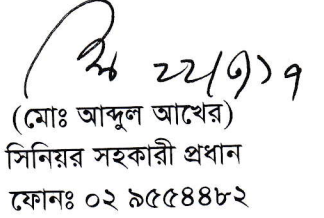 (মোঃ আব্দুল আখের)
সিনিয়র সহকারী প্রধান
ফোনঃ ০২ ৯৫৫৪৪৮২